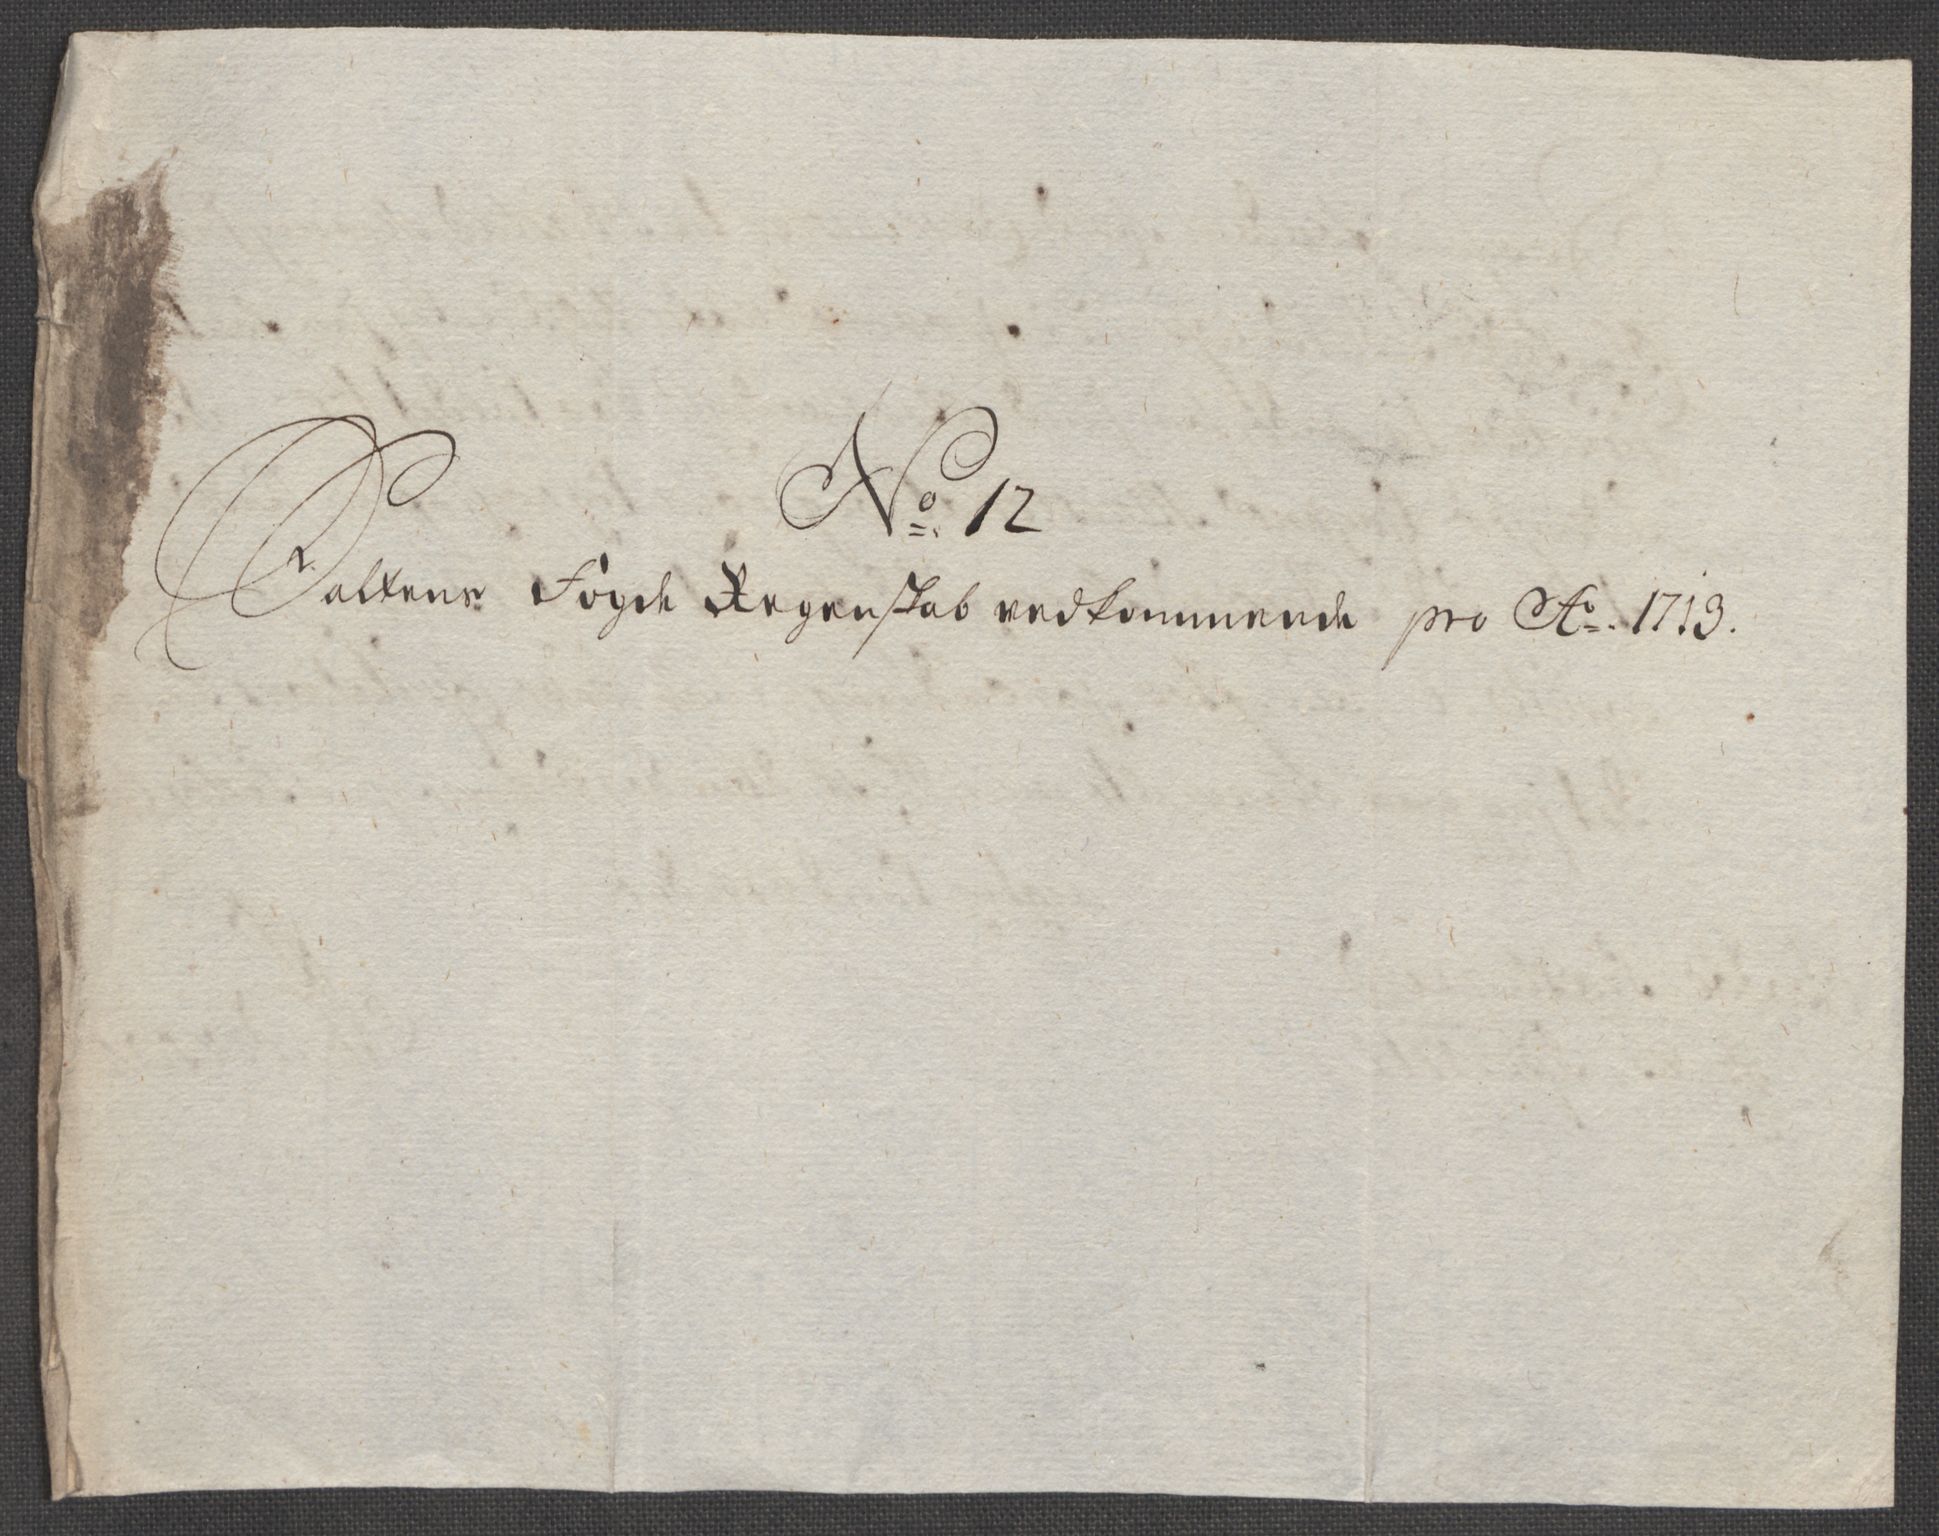 No. 12
Saltens Fogde Regenskab vedkommende pro Ao. 1713.